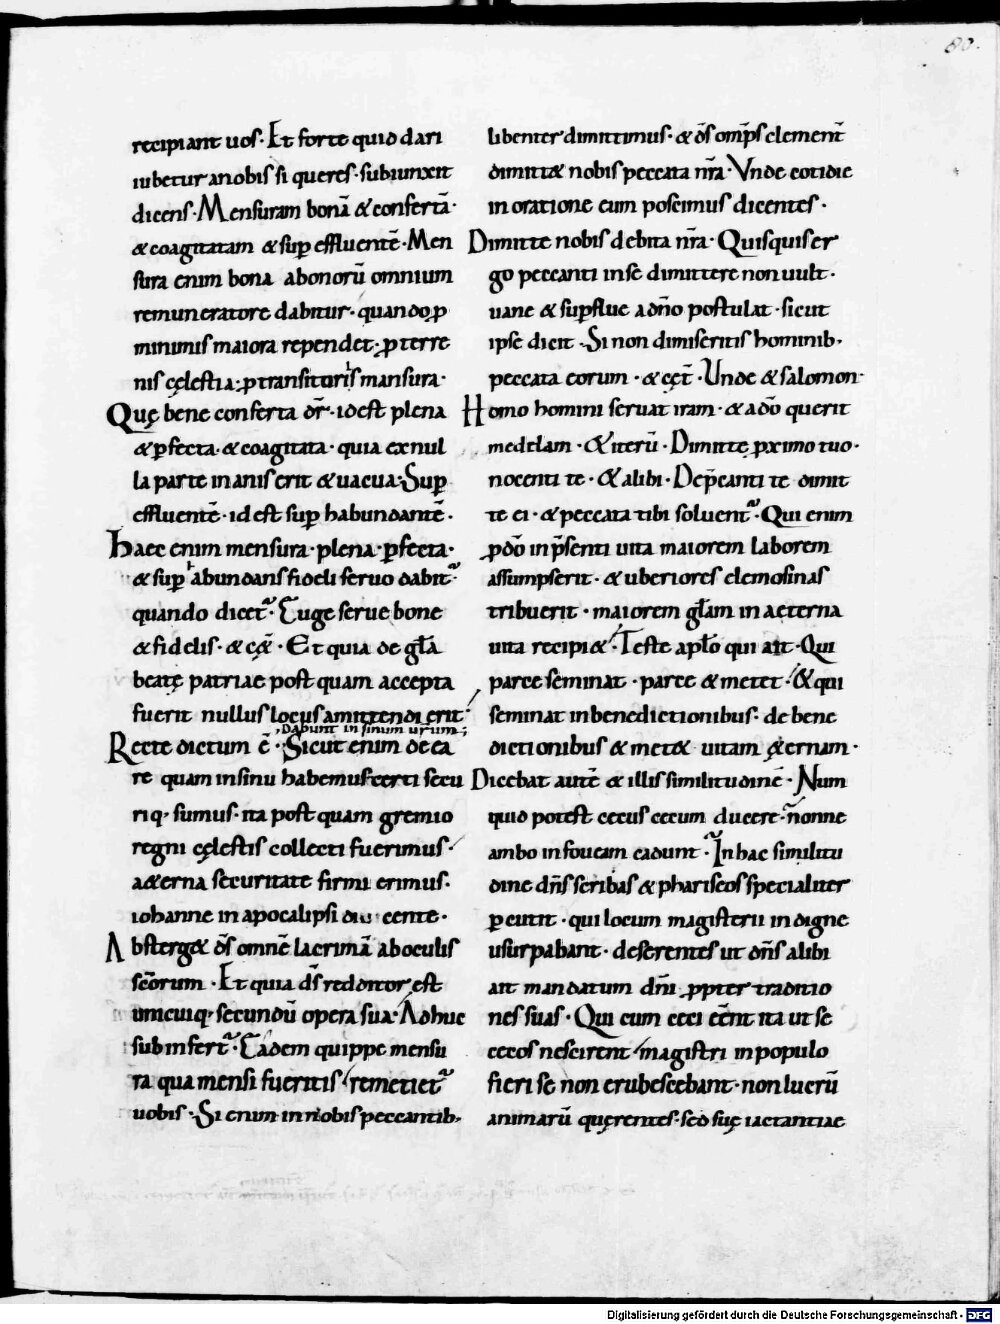 80.
recipiant uos· Et forte quid dari
iubetur anobis si queres· subiunxit
dicens· Mensuram bonā & confertā·
& coagitatam & suꝑ effluentē· Men
sura enim bona abonorū omnium
remuneratore dabitur· quando ꝓ
minimis maiora rependet· ꝓ terre
nis cęlestia· ꝓ transitoriis mansura·
Quę bene conferta dr̄· idest plena
& ꝑfecta· & coagitata· quia ex nul
la parte inanis erit & uacua· Suꝑ
effluentē· id est suꝑ habundantē·
haec enim mensura· plena· ꝑfecta·
& suꝑ abundans fideli seruo dabit᷑·
quando dicet᷑· Euge serue bone
& fidelis· & cę̄t· Et quia de gl̄a
beatę patriae post quam accepta
fuerit nullus locus amittendi erit·
dabunt in sinum ur̄um;
Recte dictum ē· Sicut enim de ea
re quam insinu habemus certi secu
riq· sumus· ita post quam gremio
regni cęlestis collecti fuerimus·
a&erna securitate firmi erimus·
iohanne in apocalipsi dicente·
Absterg& d̄s omnē lacrimā aboculis
sc̄orum· Et quia d̄s redditor est
unicuiq· secundū opera sua· Adhuc
subinfert᷑· Eadem quippe mensu
ra qua mensi fueritis remetiet᷑
uobis· Si enim in nobis peccantib·
libenter dimittimus· & d̄s omp̄s clement̄
dimitt& nobis peccata nr̄a· Vnde cotidie
in oratione eum poscimus dicentes·
Dimitte nobis debita nr̄a· Quisquis er
go peccanti inse dimittere non uult·
uane & suꝑflue a dn̄o postulat· sicut
ipse dicit· Si non dimiseritis hominib·
peccata eorum· & cęt̄· Unde & salomon·
Homo homini seruat iram· & a dō querit
medelam· & iterū· Dimitte ꝓximo tuo·
nocenti te· & alibi· Dep̄canti te dimit
te ei· & peccata tibi soluent᷑· Qui enim
ꝓ dō in p̄senti uita maiorem laborem
assumpserit· & uberiores elemosinas
tribuerit· maiorem gl̄am in aeterna
uita recipi&· Teste apl̄o qui ait· Qui
parce seminat· parce & metet· & qui
seminat inbenedictionibus· de bene
dictionibus & met& uitam ęternam·
Dicebat autē & illis similitudinē· Num
quid potest cecus cecum ducere· nonne
ambo in foueam cadunt· In hac similitu
dine dn̄s scribas & phariseos specialiter
ꝑcutit· qui locum magisterii indigne
usurpabant· deserentes ut dn̄s alibi
ait mandatum dn̄i ꝓpter traditio
nes suas· Qui cum ceci eēnt ita ut se
cecos nescirent magistri in populo
fieri se non erubescebant· non lucrū
animarū quęrentes· sed suę iactantiae
Digitalisierung gefördert durch die Deutsche Forschungsgemeinschaft - DFG